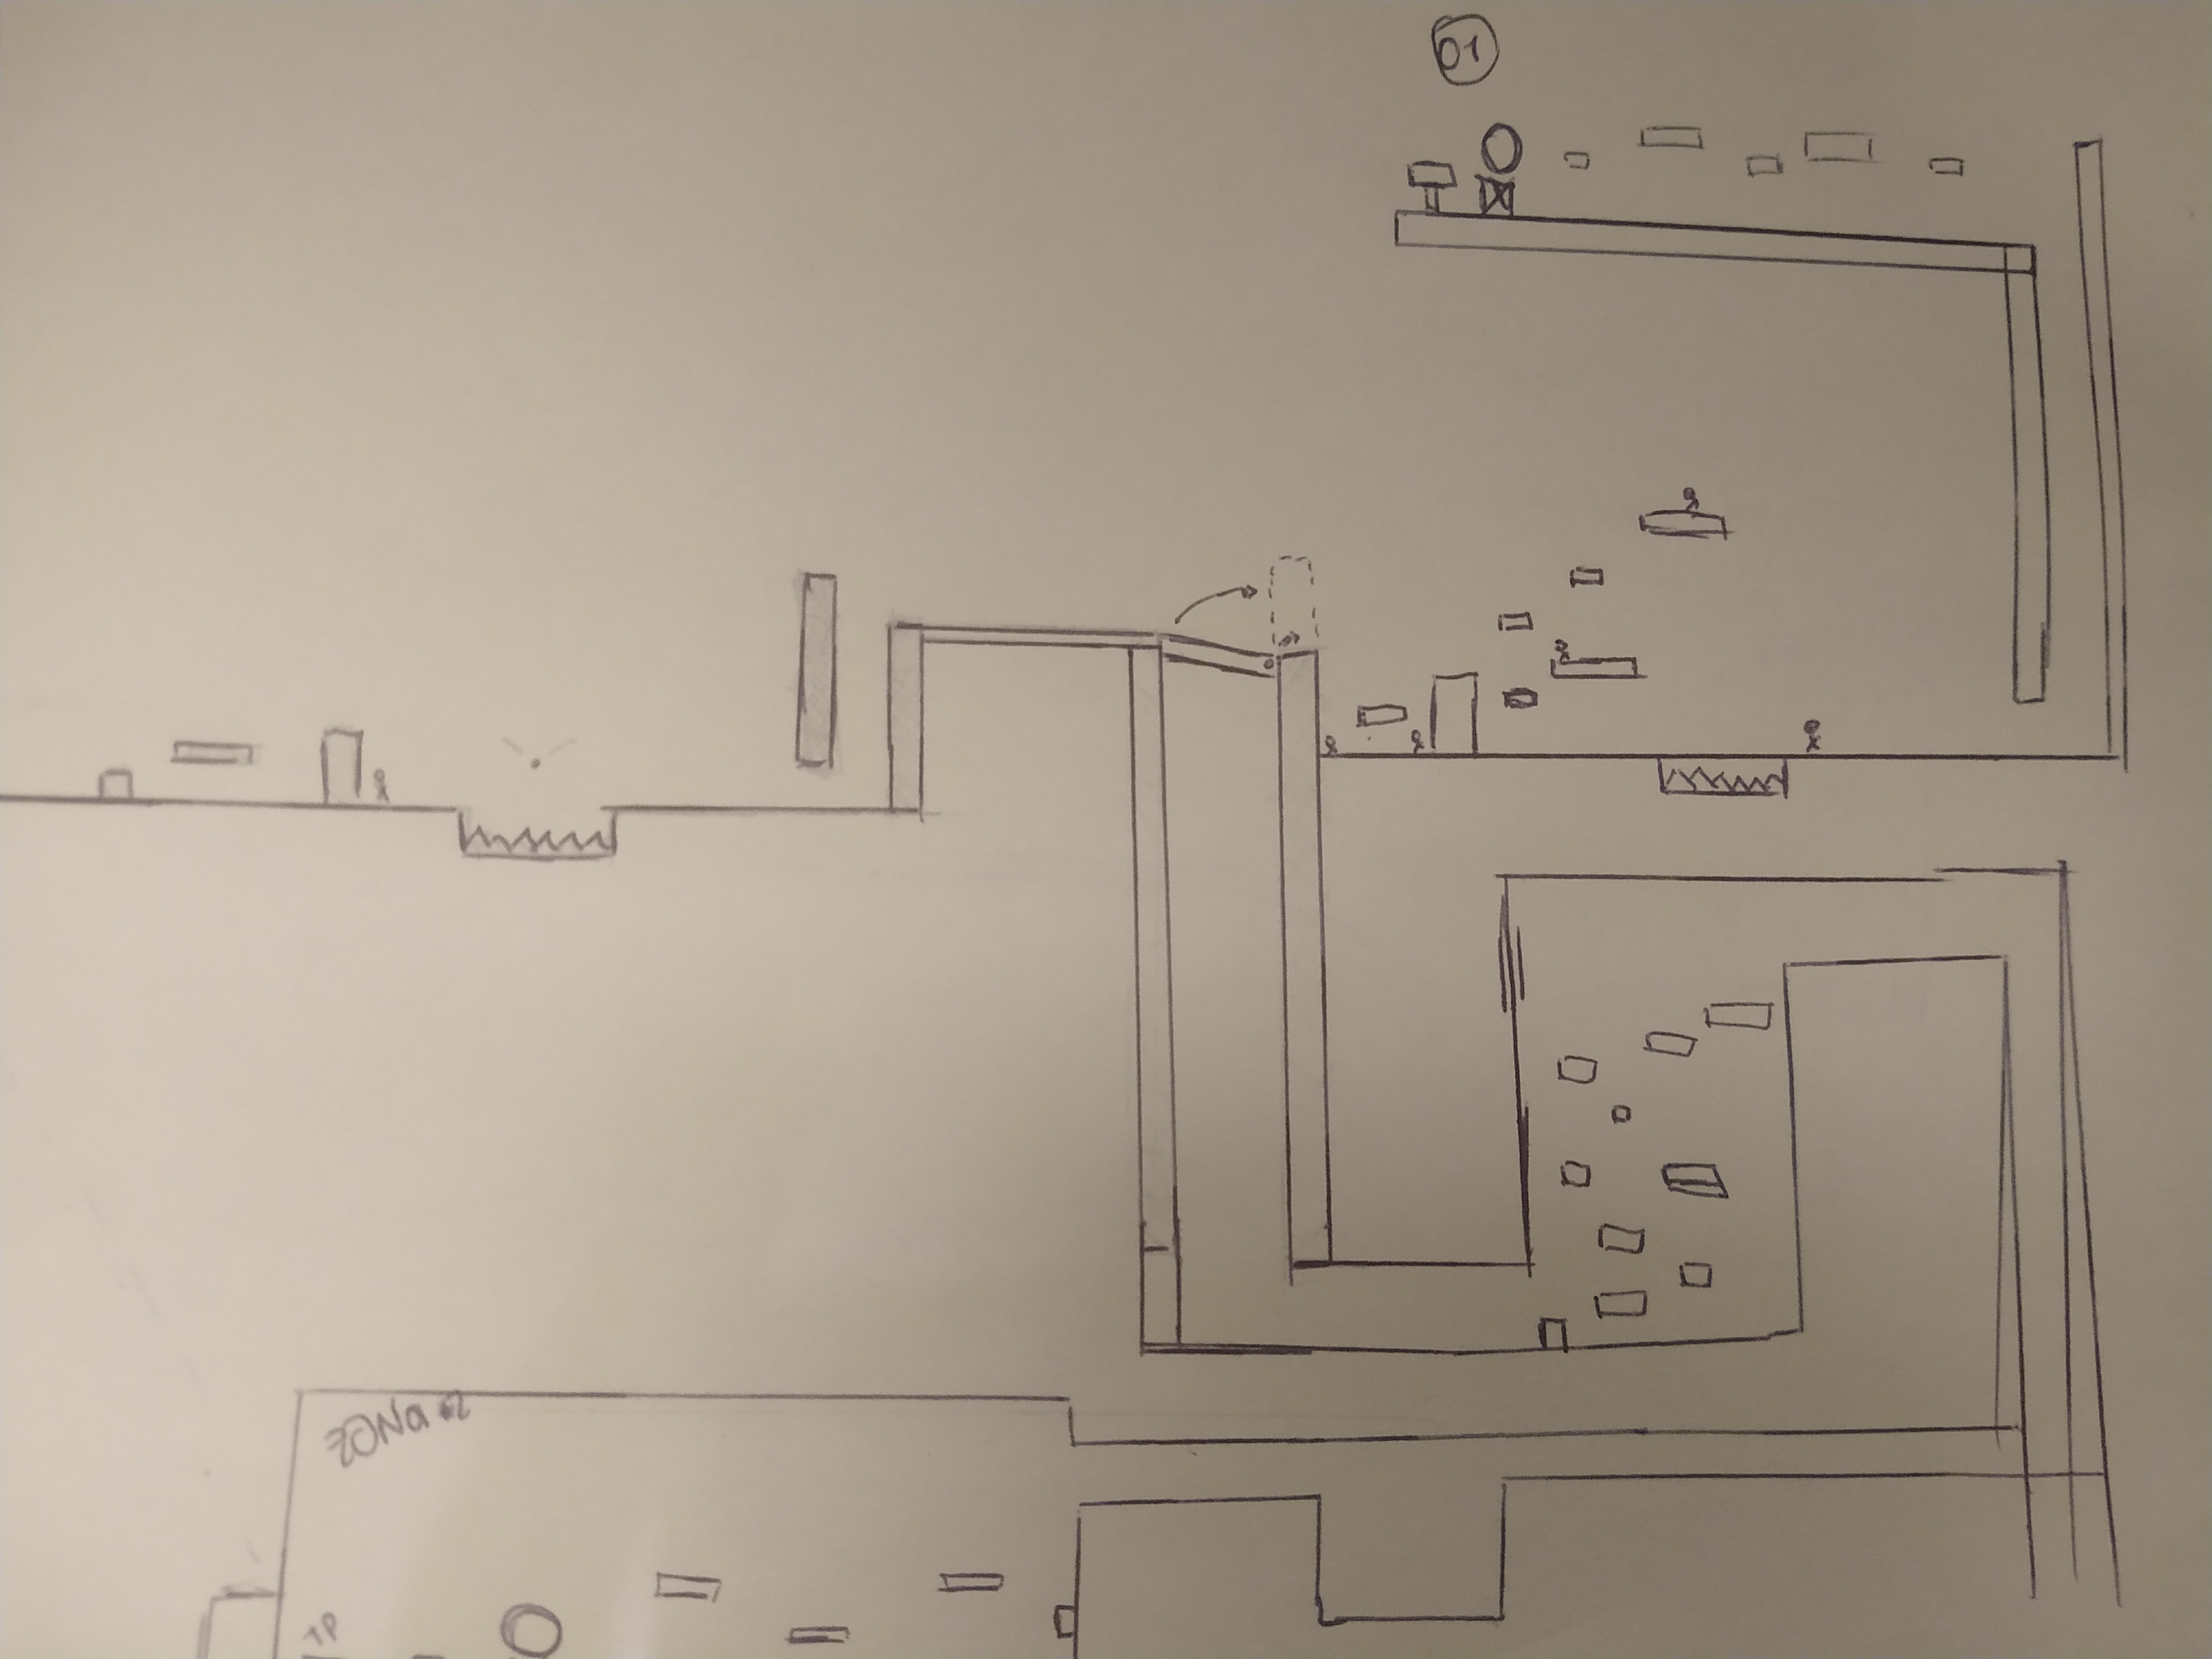 01
ZONa 02
TP